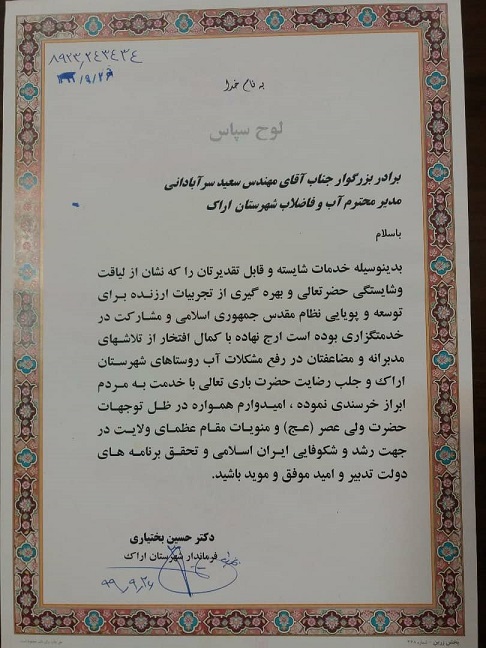 ۸۹۲۳/۲۴۳۴۳۴
۱۳۹۹/۹/۲۶
به نام خدا
لوح سپاس
برادر بزرگوار جناب آقای مهندس سعید سرآبادانی
مدیر محترم آب و فاضلاب شهرستان اراک
باسلام
بدینوسیله خدمات شایسته و قابل تقدیرتان را که نشان از لیاقت
وشایستگی حضرتعالی و بهره گیری از تجربیات ارزنده برای
توسعه و پویایی نظام مقدس جمهوری اسلامی و مشارکت در
خدمتگزاری بوده است ارج نهاده با کمال افتخار از تلاشهای
مدبرانه و مضاعفتان در رفع مشکلات آب روستاهای شهرستان
اراک و جلب رضایت حضرت باری تعالی با خدمت به مردم
ابراز خرسندی نموده ، امیدوارم همواره در ظل توجهات
حضرت ولی عصر (عج) و منویات مقام عظمای ولایت در
جهت رشد و شکوفایی ایران اسلامی و تحقق برنامه های
دولت تدبیر و امید موفق و موید باشید.
دکتر حسین بختیاری
فرماندار شهرستان اراک
۹۹/۹/۲۶